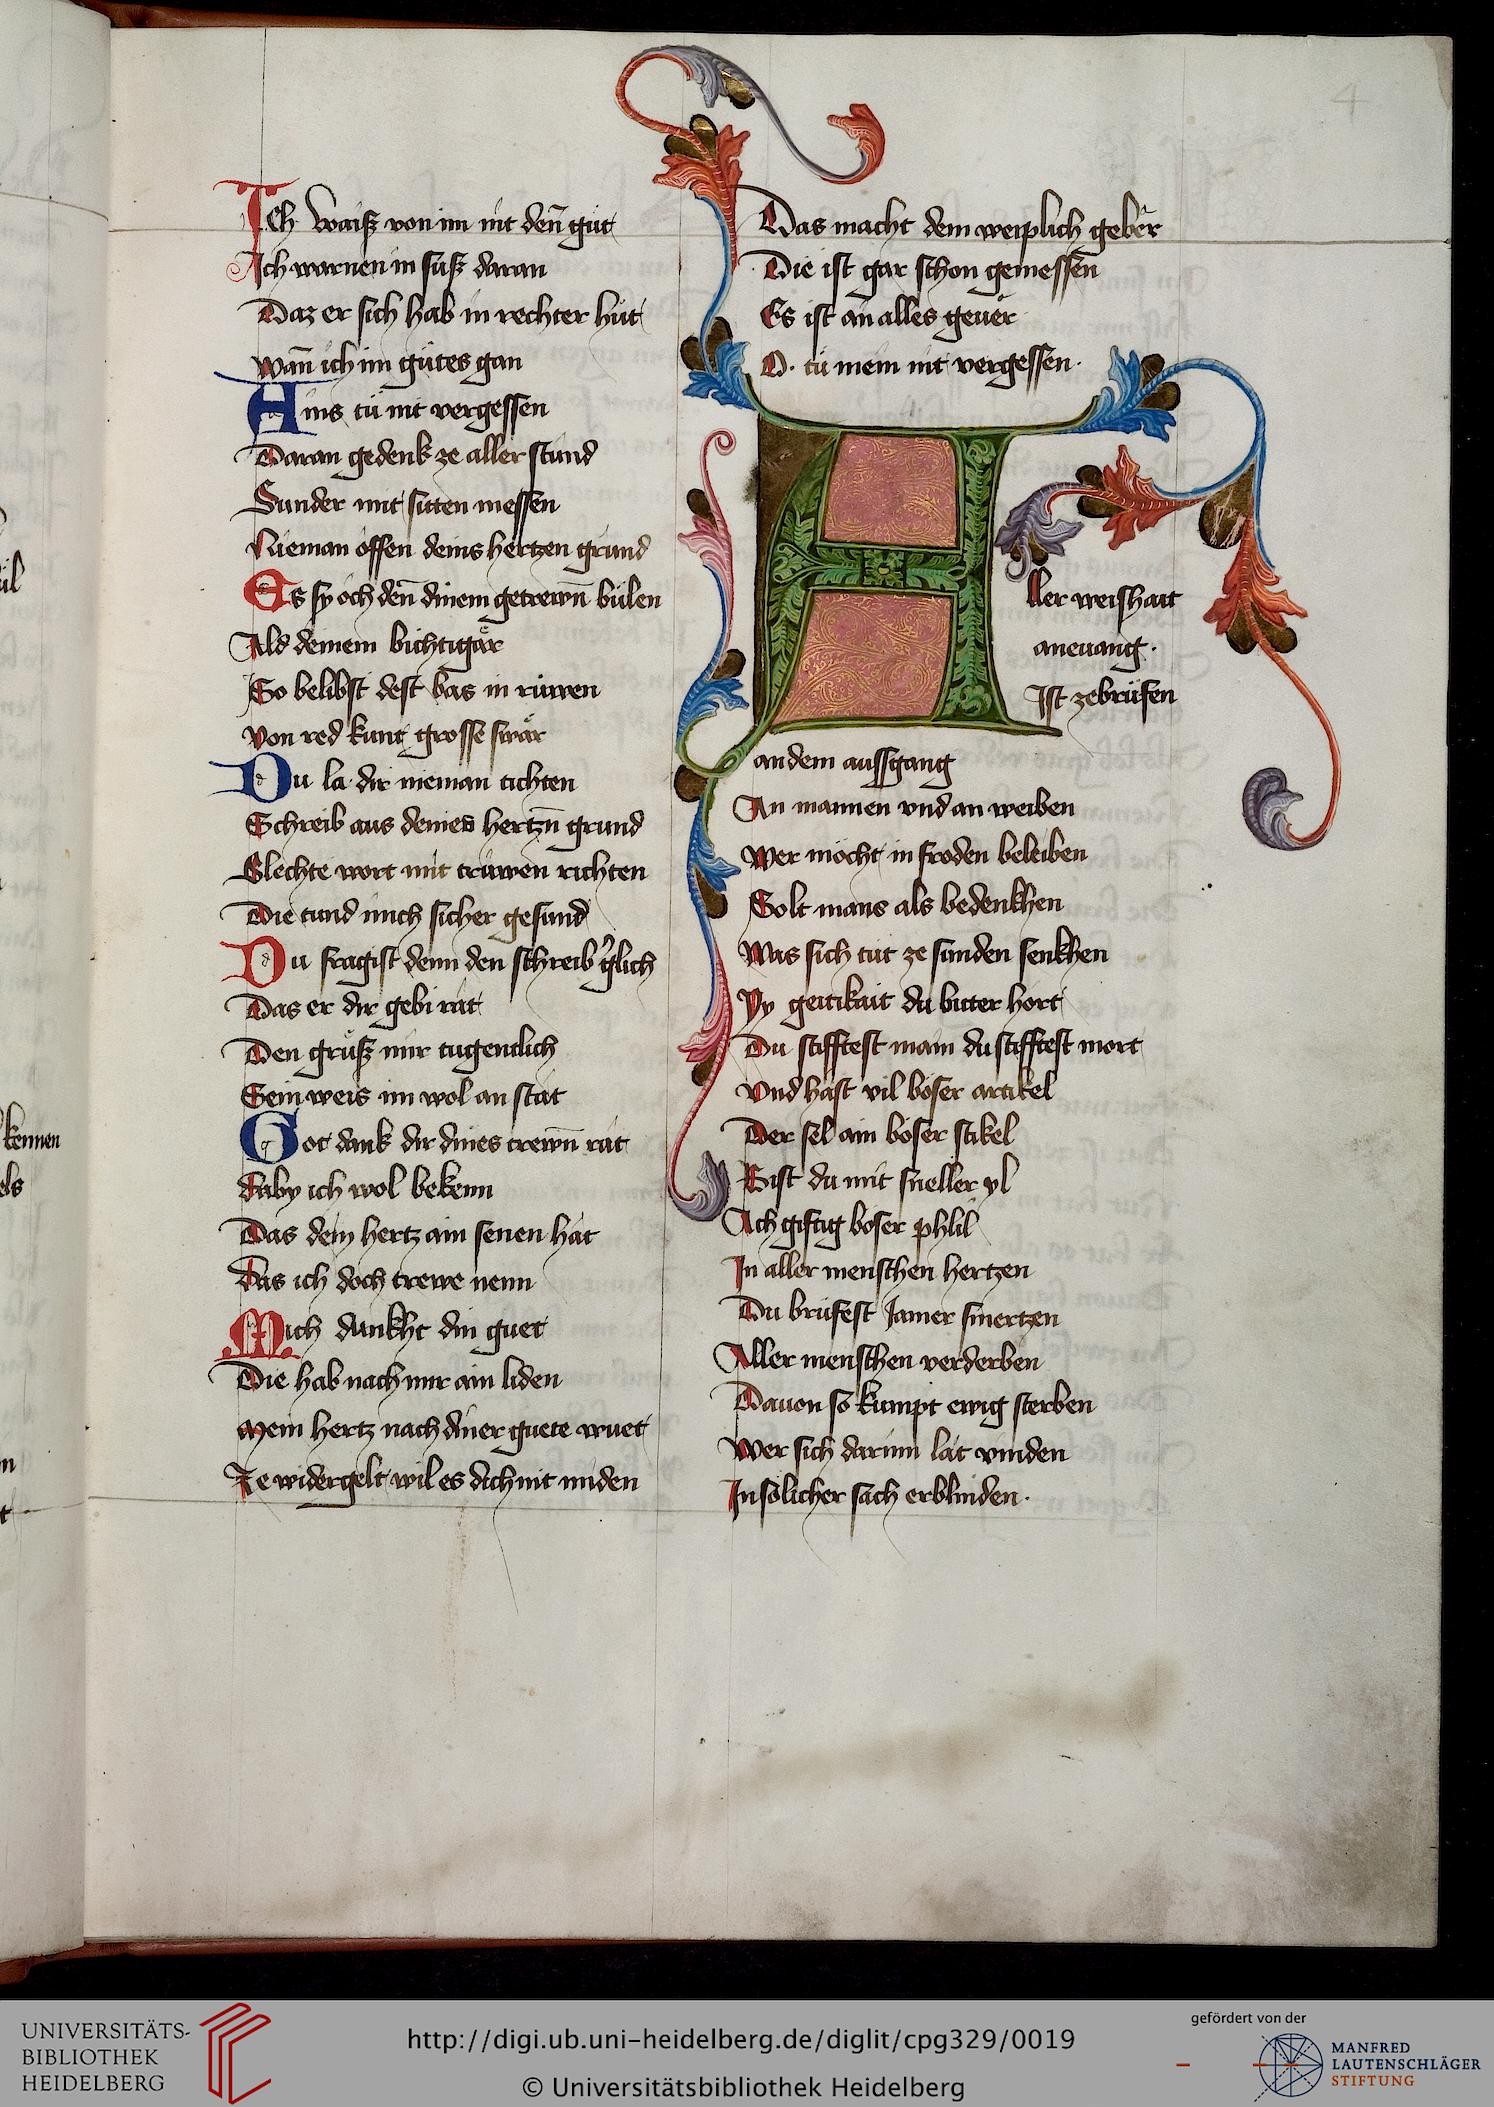 4
Ich waiß von im nit den̄ gůt
Ich warnen in suß daran
Daz er sich hab in rechter hůt
Wan̄ ich im gůtes gan
Ains tů nit vergessen
Daran gedenk ze aller stund
Sunder mit sitten messen
Nieman offen deins hertzen grund
Es sy och den̄ dinem getrewn̄ bůlen
Ald deinem bichtigär
So belibst dest bas in růwen
Von red kunt grosse swär
Du la dir nieman tichten
Schreib aus deines hertzn̄ grund
Slechte wort mit trůwen richten
Die tund mich sicher gesund
Du fragist denn den schreib
Das er dir gebi rat
Den grůß mir tugentlich
Sein weis im wol an stat
Got dank dir dines trewn̄ rat
Daby ich wol bekenn
Das dein hertz ain senen hat
Das ich doch trewe nenn
Mich dunkht din guet
Die hab nach mir ain liden
Mein hertz nach diner guete wuet
Ze widergelt wil es dich nit miden
Das macht dein weiplich geber
Die ist gar schon gemessen
Es ist an alles gever
O. tů mein nit vergessen.
Aller weishait
anevang.
Ist zebrüfen
an dem aussgang
An mannen vnd an weiben
Wer möcht in froden beleiben
Solt mans als bedenkhen
Was sich tut ze sunden senkhen
Py geitikait du bitter hort
Du stifftest main du stifftest mort
Vnd hast vil böser artikel
Der sel ain böser stikel
Bist du mit sneller yl
Ach giftig boser phlil
In aller menschen hertzen
Du brüfest Jamer smertzen
Aller menschen verderben
Davon so kumpt ewig sterben
Wer sich darum lat vinden
In solicher sach erblinden.
kennen
els
UNIVERSITÄTS-
BIBLIOTHEK
HEIDELBERG
http://digi.ub.uni-heidelberg.de/diglit/cpg329/0019
© Universitätsbibliothek Heidelberg
gefördert von der
MANFRED
LAUTENSCHLÄGER
STIFTUNG